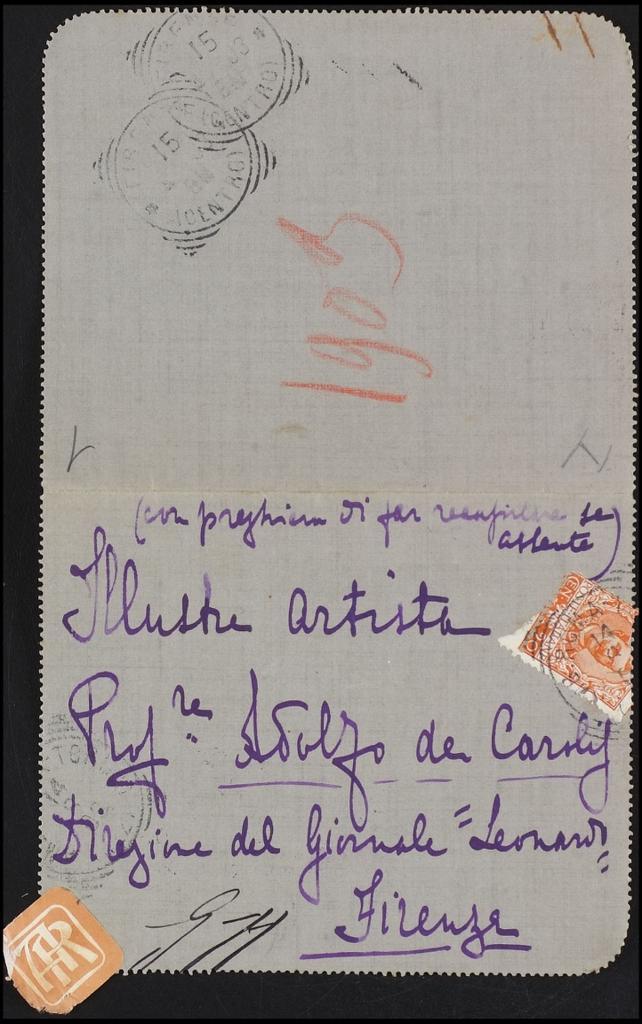 15
(CENTRO)
15
(CENTRO)
1905
(con preghiera di far recapitare se
assente)
Illustre Artista
Prof.re Adolfo de Carolis
Direzione del Giornale "Leonardo"
Firenze